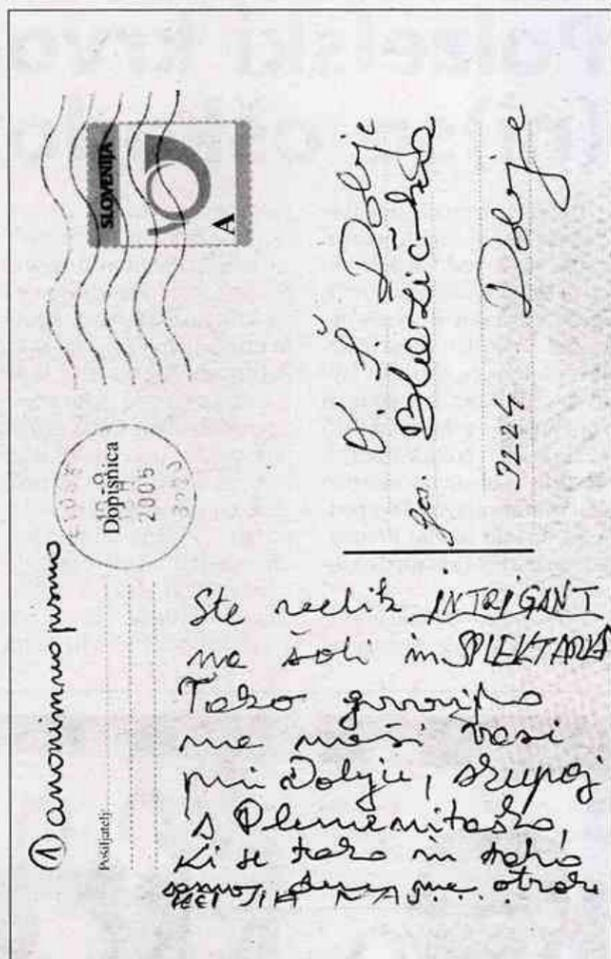 ① anonimno pismo
Pošiljatelj:
Dopisnica
2005
SLOVENIJA
A
O. Š. Dobje
gos
3224 Dobje
Ste velik INTRIGANT
na šoli in
Tako govorijo
na naši vasi
pri Dobju, skupaj
s Plemenitaško,
ki se tako in tako
samo otroke
NAS....